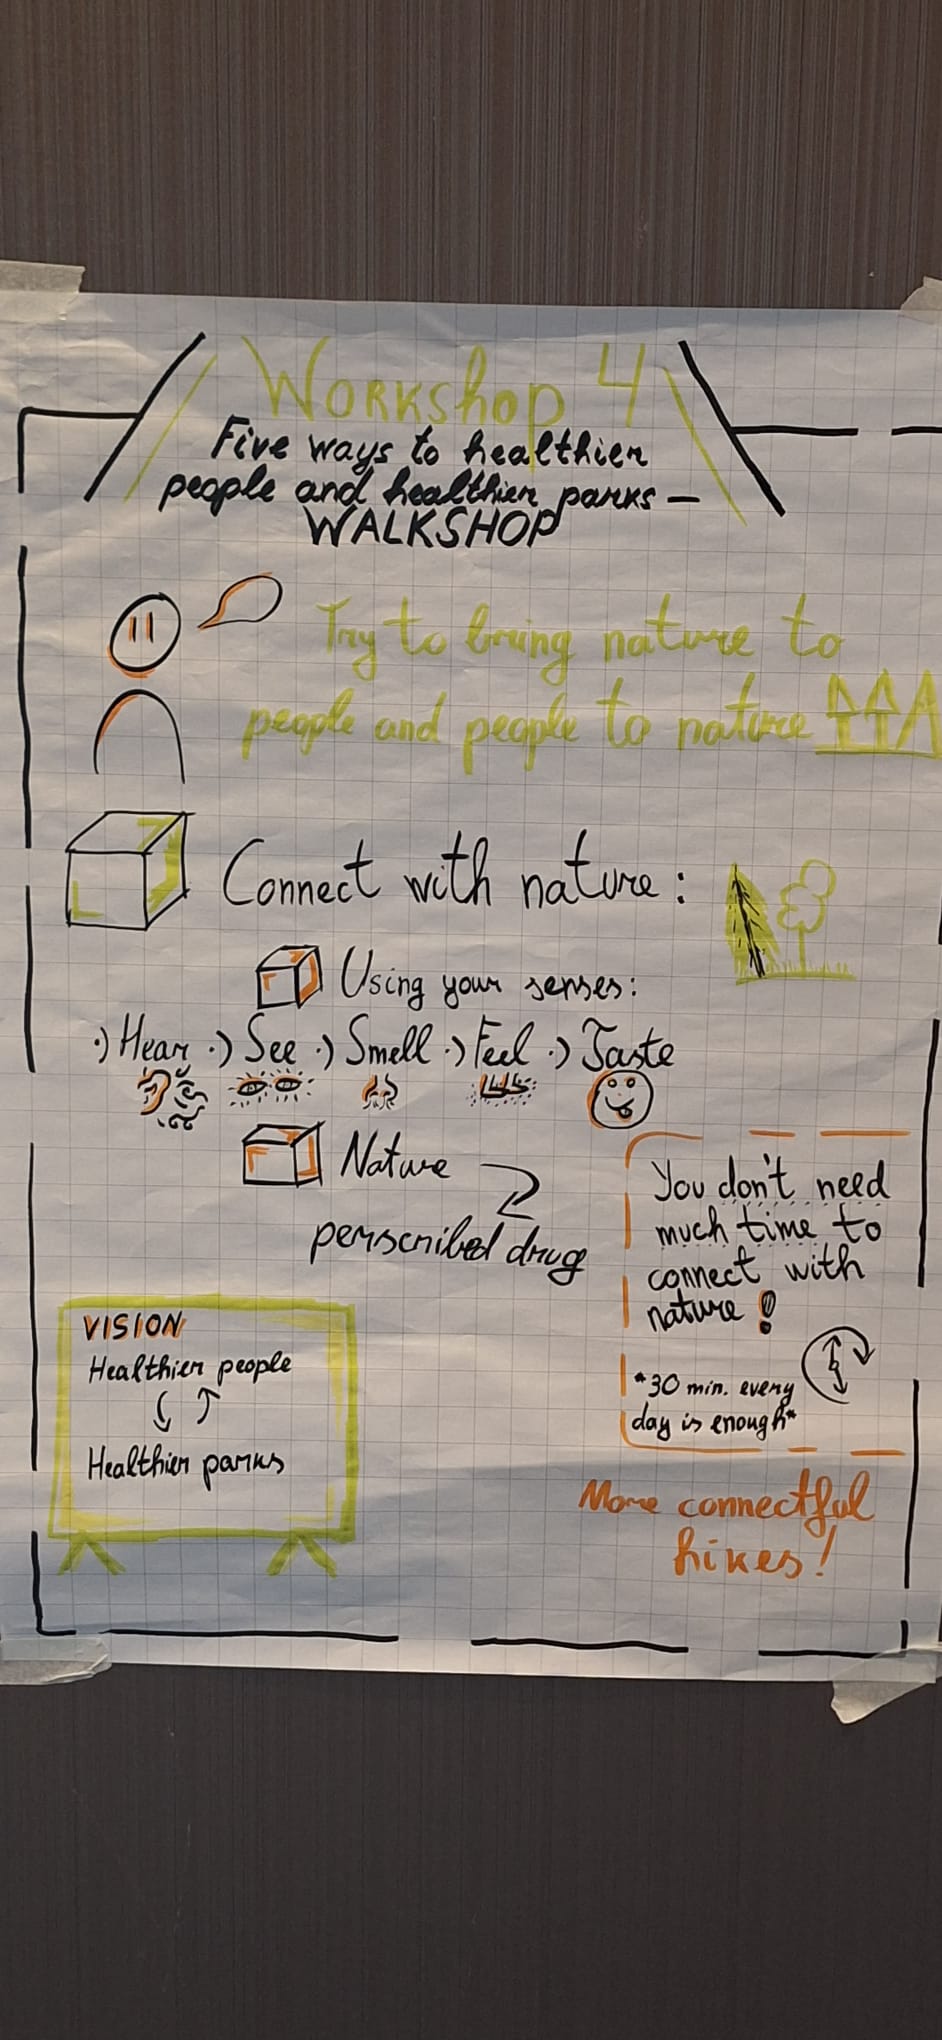 Workshop 4
Five ways to healthier
people and healthier parks –
WALKSHOP
Try to bring nature to
people and people to nature
Connect with nature:
Using your senses:
·) Hear ·) See ·) Smell ·) Feel ·) Taste
Nature
perscribed drug
You don't need
much time to
connect with
nature!
*30 min. every
day is enough*
VISION
Healthier people
Healthier parks
More connectful
hikes!